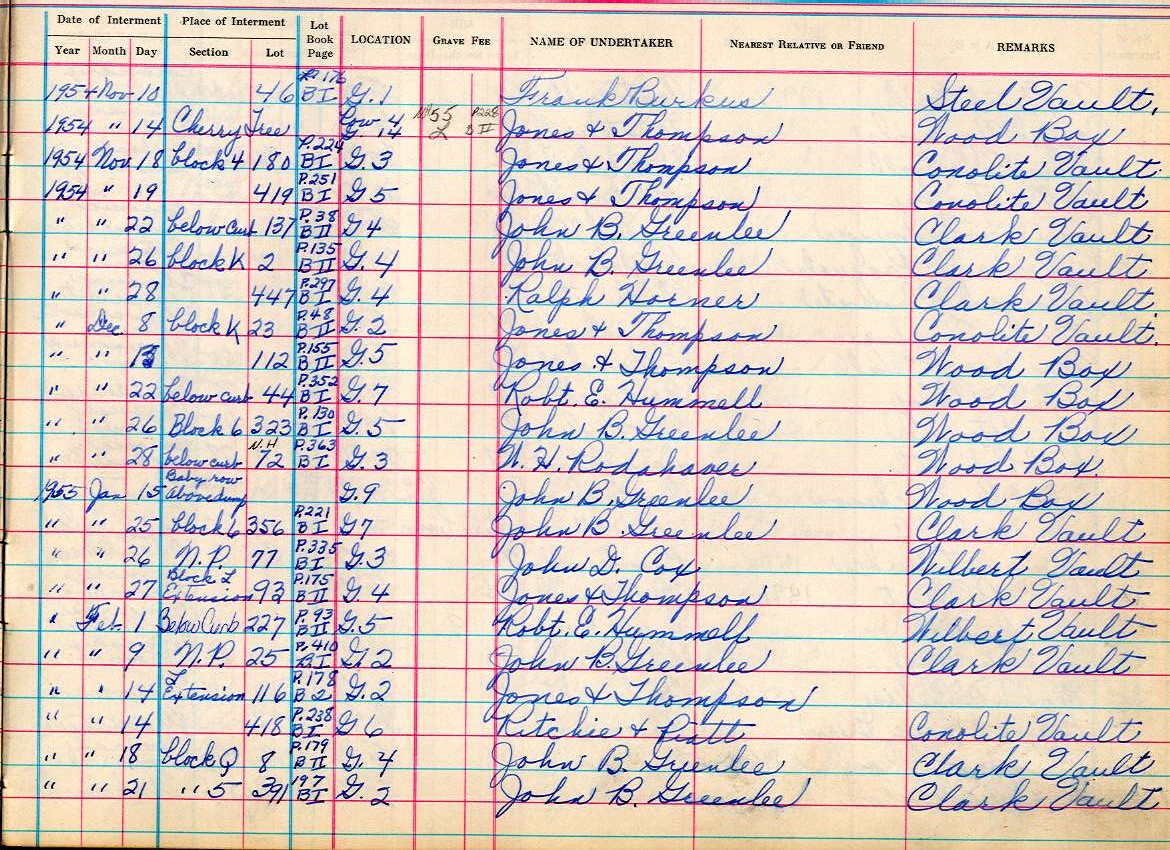 Date of Interment Place of Interment Lot Book Page LOCATION GRAVE FEE NAME OF UNDERTAKER NEAREST RELATIVE OR FRIEND REMARKS
Year Month Day Section Lot
1954 Nov 10 46 P. 176 B I G. 1 Frank Burkus Steel Vault.
1954 " 14 Cherry Tree Row 4 G. 14 55 2 P228 B II Jones & Thompson Wood Box
1954 Nov. 18 block 4 180 P. 224 B I G. 3 Jones & Thompson Conolite Vault.
1954 " 19 419 P. 251 B I G 5 Jones & Thompson Conolite Vault
" " 22 below curb 137 P. 38 B II G 4 John B. Greenlee Clark Vault
" " 26 block K 2 P. 135 B II G. 4 John B. Greenlee Clark Vault
" " 28 447 P. 297 B I G. 4 Ralph Horner Clark Vault.
" Dec. 8 block K 23 P. 48 B II G. 2 Jones & Thompson Conolite Vault.
" " 112 P. 155 B II G. 5 Jones & Thompson Wood Box
" " 22 below curb 44 P. 352 B I G. 7 Robt. E. Hummell Wood Box
" " 26 Block 6 323 P. 130 B I G. 5 John B. Greenlee Wood Box
" " 28 below curb N.H 72 P. 363 B I G. 3 W. H. Rodahaver Wood Box.
1955 Jan 15 Baby row Above dump G. 9 John B. Greenlee Wood Box
" " 25 block 6 356 P. 221 B I G 7 John B. Greenlee Clark Vault
" " 26 N. P. 77 P. 335 B I G. 3 John D. Cox Wilbert Vault
" " 27 Block L Extension 93 P. 175 B II G 4 Jones & Thompson Clark Vault
" Feb. 1 Below Curb 227 P. 93 B II G. 5 Robt. E. Hummell Wilbert Vault
" " 9 N. P. 25 P. 410 B I G. 2 John B. Greenlee Clark Vault
" " 14 L Extension 116 P. 178 B 2 G. 2 Jones & Thompson
" " 14 418 P. 238 B I G 6 Ritchie & Piatt Conolite Vault
" " 18 block Q 8 P. 179 B II G. 4 John B. Greenlee Clark Vault
" " 21 " 5 391 197 B I G. 2 John B. Greenlee Clark Vault